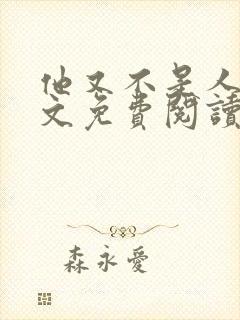 他又不是人
文免費閱讀
森永愛